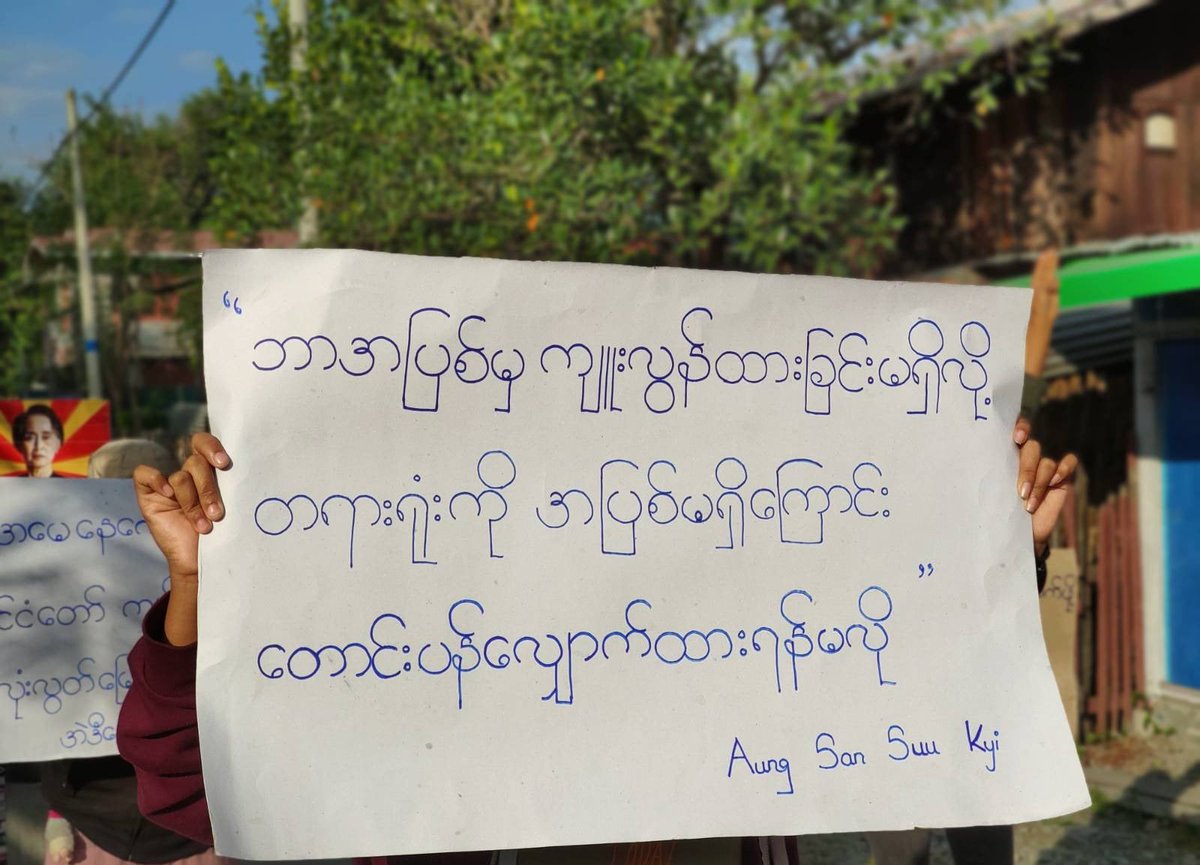 “ ဘာအပြစ်မှ ကျူးလွန်ထားခြင်းမရှိလို့
တရားရုံးကို အပြစ်မရှိကြောင်း
တောင်းပန်လျှောက်ထားရန်မလို ”
Aung San Suu Kyi
အမေ နေ
တော်
လုံးလွတ်